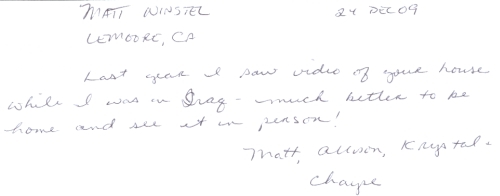 MATT WINSTEL 24 DEC 09
LEMOORE, CA
Last year I saw video of your house
while I was in Iraq - much better to be
home and see it in person!
Matt, Allison, Krystal +
Chayse